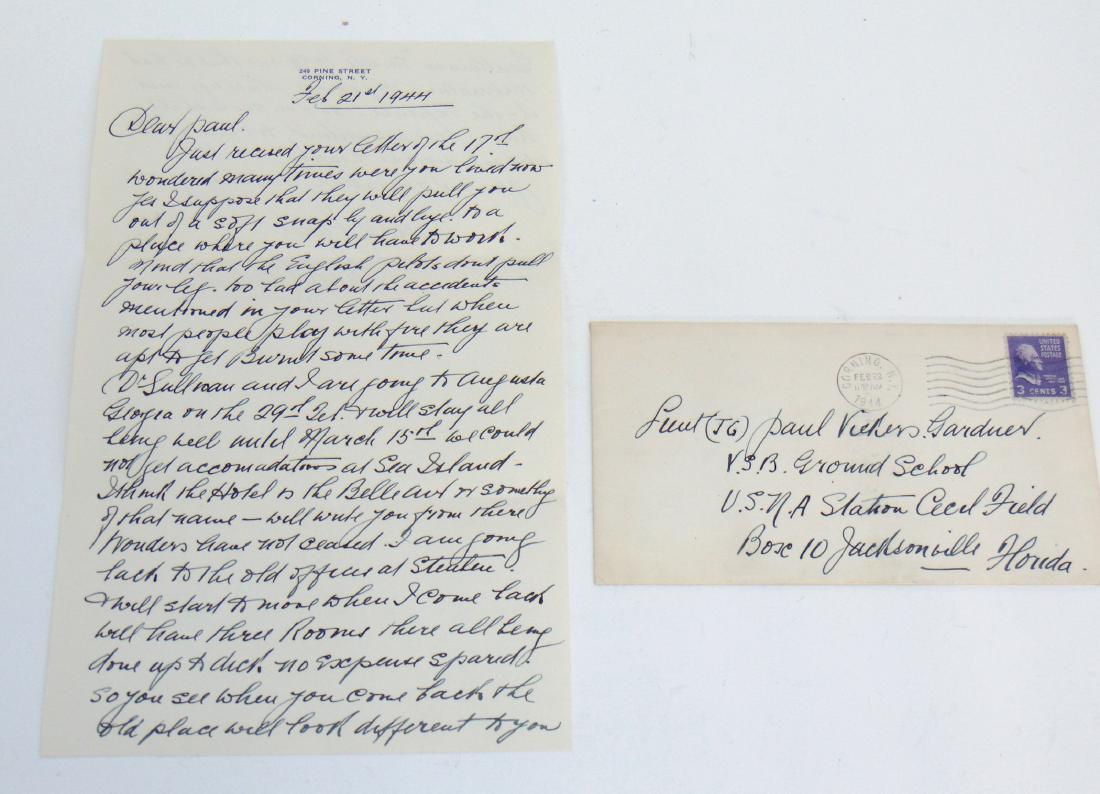 240 PINE STREET
CORNING, N. Y.
Feb 21st 1944
Dear Paul.
Just received your letter of the 17th
wondered many times were you lived now
yes I suppose that they will pull you
out of a soft snap by and bye. to a
place where you will have to work.
Mind that the English pilots dont pull
your leg. too bad about the accidents
mentioned in your letter but when
most people play with fire they are
apt to get Burnt some time.
Dr Sullivan and I are going to Augusta
Georgia on the 29th Feb. & will stay all
being well until March 15th we could
not get accomadations at Sea Island -
I think the Hotel is the Belle or somethg
of that name - will write you from there
Wonders have not ceased. I am going
back to the old office at Steuben.
& will start to move when I come back
will have three Rooms there all being
done up to dick no expense spared.
So you see when you come back the
old place will look different to you
CORNING, N.Y.
FEB 22
1944
UNITED
STATES
POSTAGE
3 CENTS 3
Lieut (JG) Paul Vickers Gardner.
V.S.B. Ground School
U.S.N.A Station Cecil Field
Box 10 Jacksonville Florida.